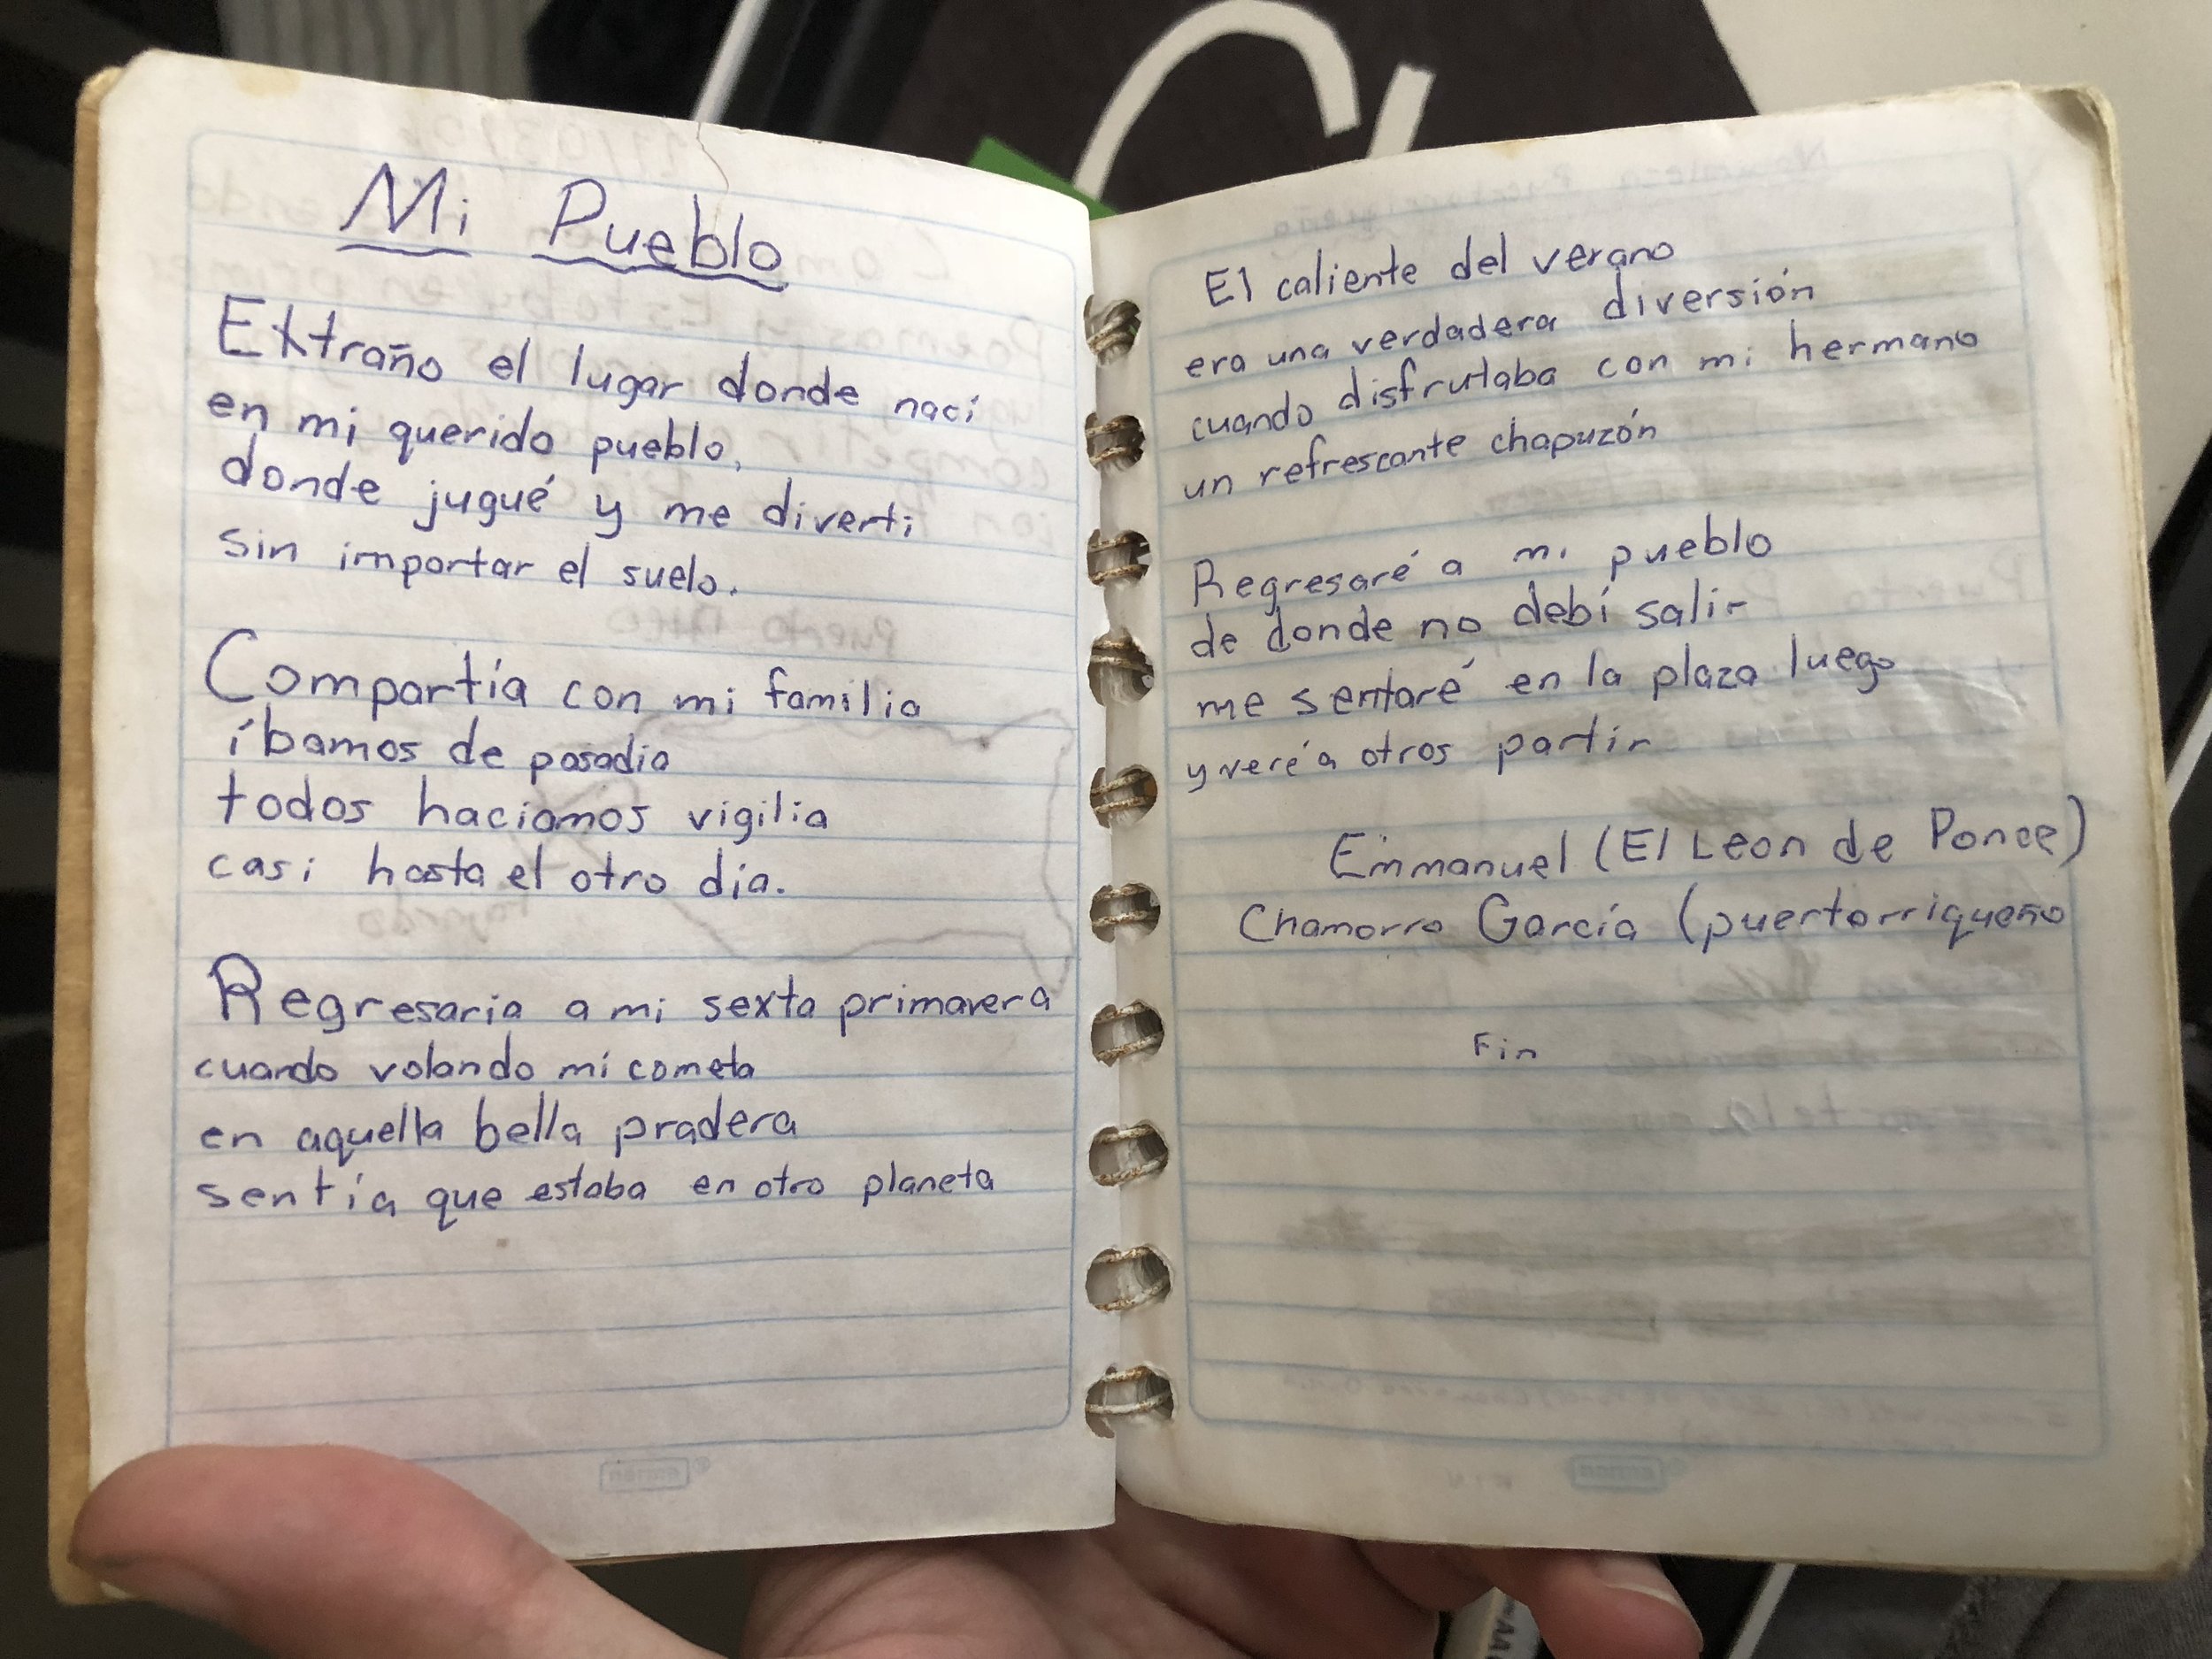 Mi Pueblo
Extraño el lugar donde nací
en mi querido pueblo,
donde jugué y me divertí
sin importar el suelo.
Compartía con mi familia
íbamos de pasadia
todos haciamos vigilia
casi hasta el otro día.
Regresaria a mi sexta primavera
cuando volando mi cometa
en aquella bella pradera
sentía que estaba en otro planeta
El caliente del verano
era una verdadera diversión
cuando disfrutaba con mi hermano
un refrescante chapuzón
Regresaré a mi pueblo
de donde no debí salir
me sentaré en la plaza luego
y veré a otros partir
Emmanuel (El Leon de Ponce)
Chamorro García (puertorriqueño
Fin